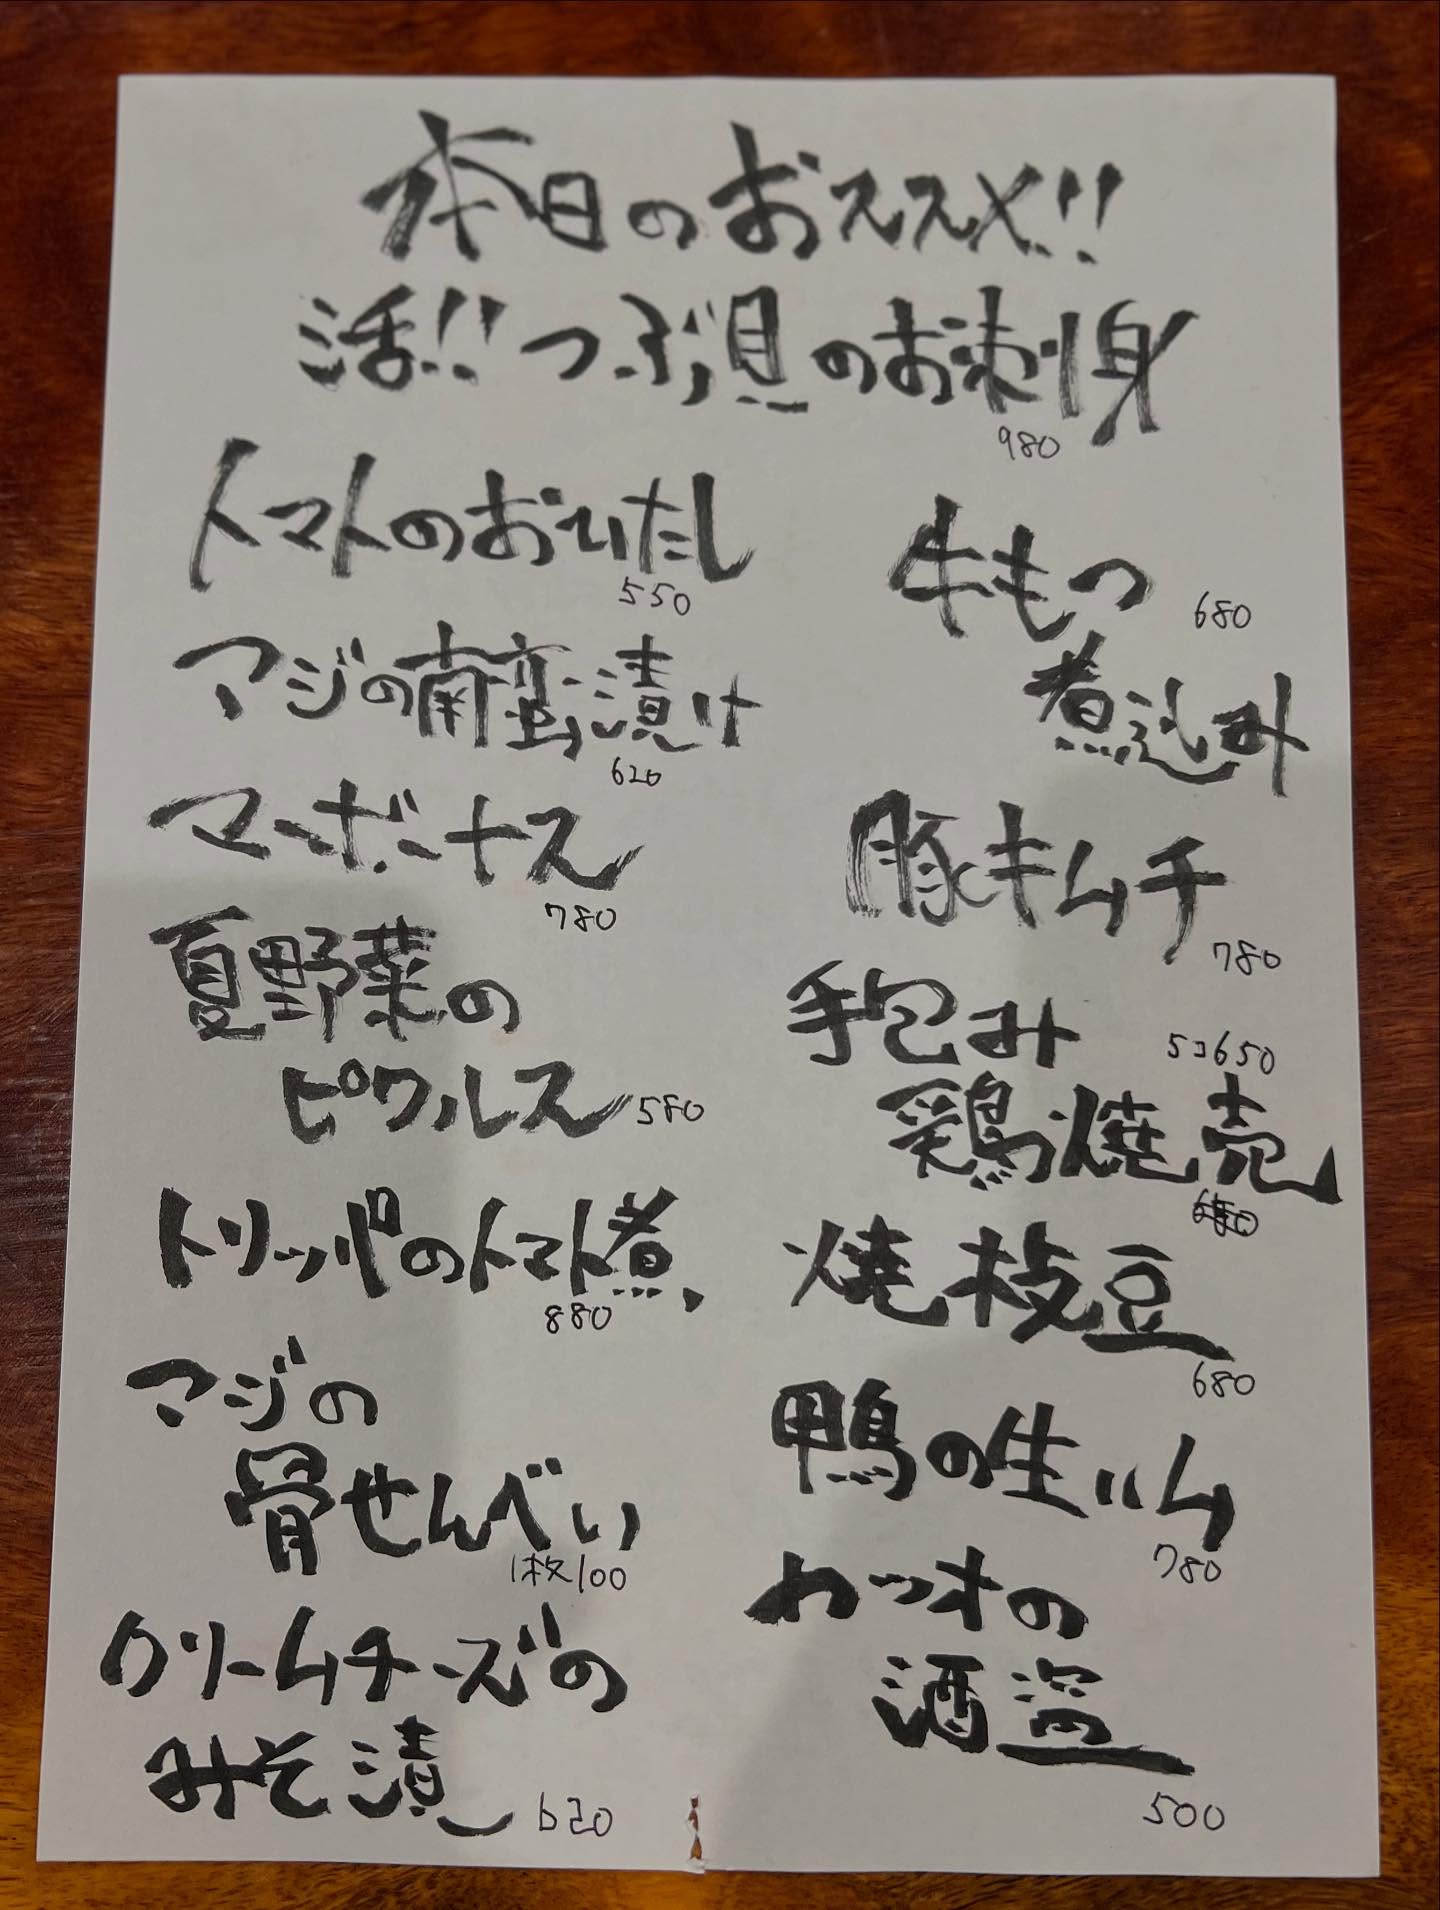 本日のおススメ!!
活!!つぶ貝のお刺身
980
トマトのおひたし
550
アジの南蛮漬け
620
マーボーナス
780
夏野菜の
ピクルス 580
トリッパのトマト煮
880
アジの
骨せんべい
1枚100
クリームチーズの
みそ漬 620
牛もつ 680
煮込み
豚キムチ
780
手包み 5コ650
鶏焼売
焼枝豆
680
鴨の生ハム
780
カツオの
酒盗
500